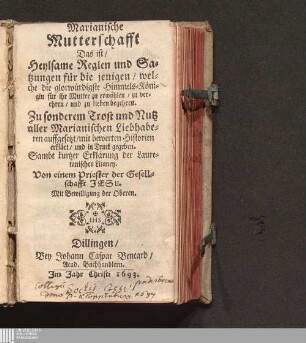 Marianische
Mutterschafft
Das ist /
Heylsame Reglen und Sa-
tzungen für die jenigen / wel-
che die glorwürdigste Himmels-Köni-
gin für ihr Mutter zu erwöhlen / zu ver-
ehren / und zu lieben begehren.
Zu sonderem Trost und Nutz
aller Marianischen Liebhabe-
ren auffgesetzt / mit bewerten Historien
erklärt / und in Truck gegeben.
Sambt kurtzer Erklärung der Laure-
tanischen Litaney.
Von einem Priester der Gesell-
schafft JESU.
Mit Bewilligung der Oberen.
IHS
Dillingen /
Bey Johann Caspar Bencard /
Acad. Buchhandlern.
Im Jahr Christi 1693.
Collegij Societ. Jesu